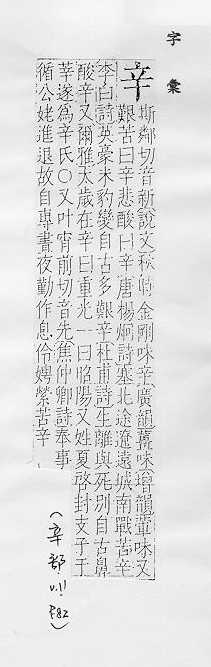 字彙
辛
斯鄰切音新說文秋時金剛味辛廣韻葷味增韻葷味又
艱苦曰辛悲酸曰辛唐楊炯詩塞北途遼遠城南戰苦辛
李白詩英豪未豹變自古多艱辛杜甫詩生離與死別自古鼻
酸辛又爾雅太歲在辛曰重光一曰昭陽又姓夏啓封支子于
莘遂為辛氏〇又叶宵前切音先焦仲卿詩奉事
循公姥進退故自專晝夜勤作息伶娉縈苦辛
(辛部